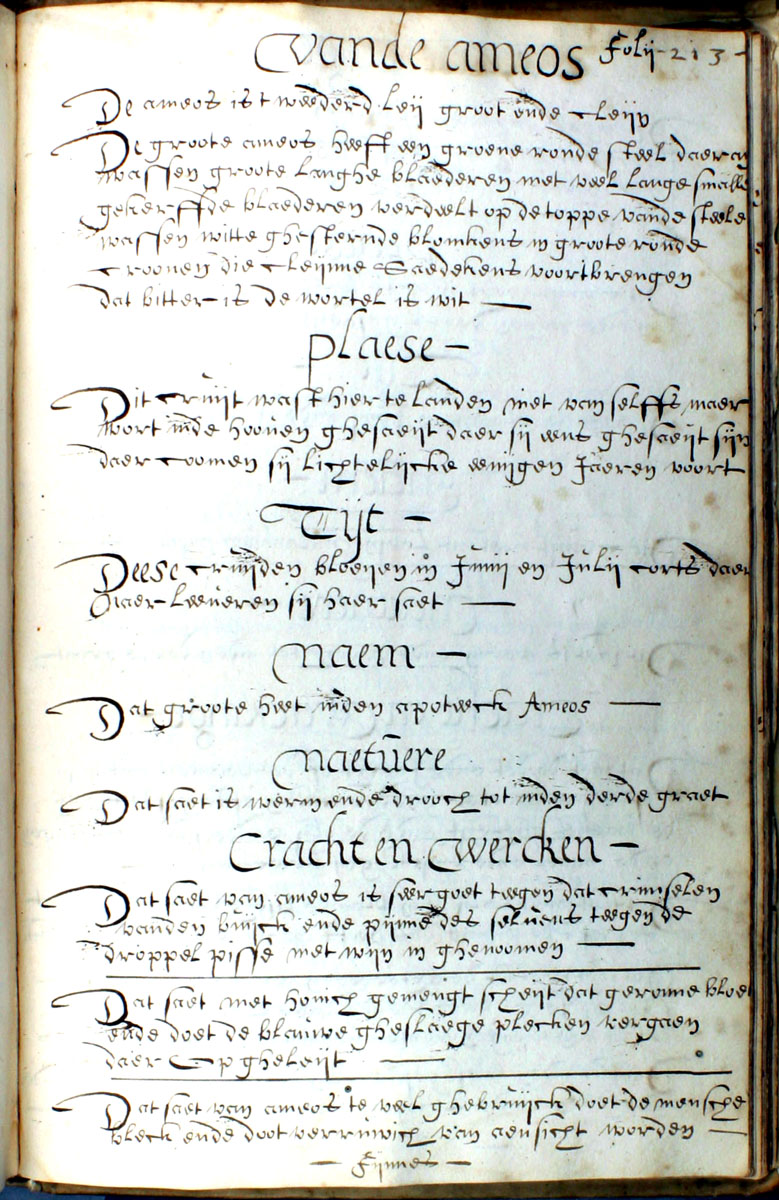 Vande ameos Folij 213
De ameos is tweederdleij groot ende cleijn
De groote ameos heeft een groene ronde steel daer aen
wassen groote langhe blaederen met veel lange smalle
gekerffde blaederen verdeelt op de toppe vande steele
wassen witte ghesternde blomkens in groote ronde
croonen die cleijnne saedekens voortbrengen
dat bitter is de wortel is wit
plaese
Dit cruijt wast hier te landen niet van selffs maer
wort inde hooven ghesaeijt daer sij eens ghesaeijt sijn
daer coomen sij lichtelijcke eenijgen Jaeren voort
Tijt
Deese cruijden bloeijen in Junij en Julij corts daer
naer leeveren sij haer saet
naem
Dat groote heet inden apoteeck Ameos
naetuere
Dat saet is werm ende drooch tot inden derde graet
Cracht en Wercken
Dat saet van ameos is seer goet teegen dat crimselen
vanden buijck ende pijnne des selvens teegen de
droppel pisse met wijn in ghenoomen
Dat saet met honich gemengt scheijt dat geronne bloet
ende doet de blauwe gheslaege plecken vergaen
daer op gheleijt
Dat saet van ameos te veel ghebruijck doet de mensche
bleck ende doot verruwich van aensicht worden
Fijnnes